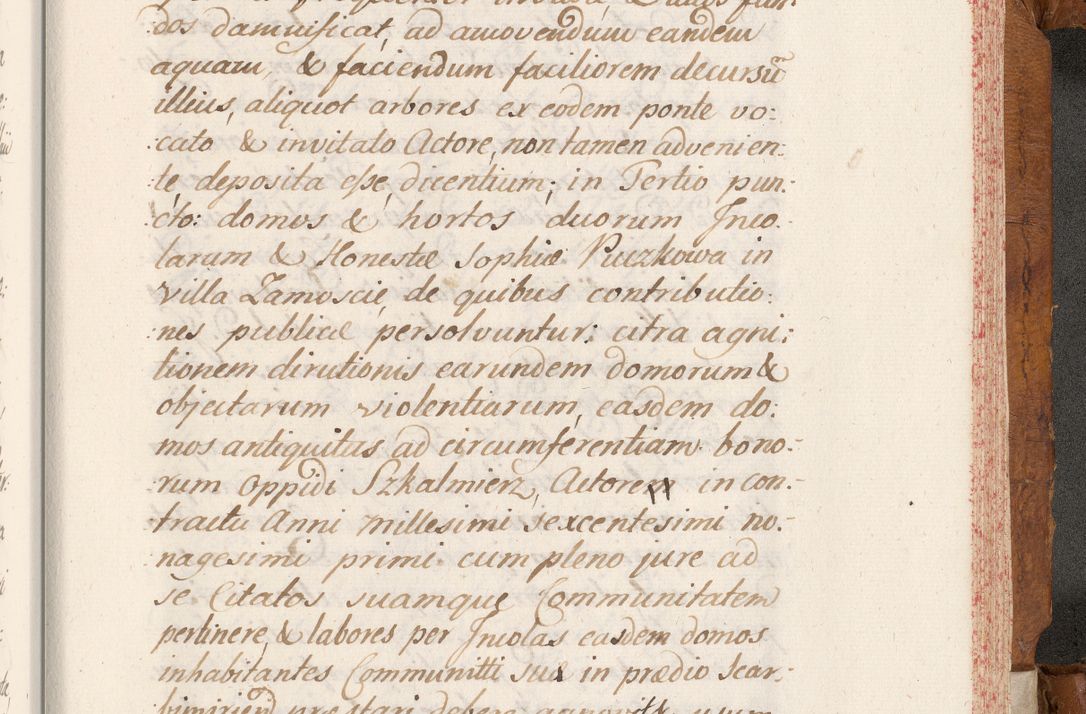 dos damnificat, ad amovendum eandem
aquam, & faciendum faciliorem decursū
illius, aliquot arbores ex eodem ponte vo:
cato & invitato Actore, non tamen advenien:
te, deposita esse dicentium; in Tertio pun:
cto: domos & hortos duorum Inco:
larum & Honestæ Sophiæ Puczkowa in
Villa Zamoscie, de quibus contributio:
nes publicæ persolvuntur: citra agni:
tionem dirutionis earundem domorum &
objectarum violentiarum, easdem do:
mos antiquitus ad circumferentiam bono:
rum Oppidi Szkalmierz, Actorem in con:
tractu Anni Millesimi sexcentesimi no:
nagesimi primi cum pleno jure ad
se Citatos suamque Communitatem
pertinere, & labores per Incolas easdem domos
inhabitantes Communitti suæ in prædio Scar:
bimiriens præstari debere